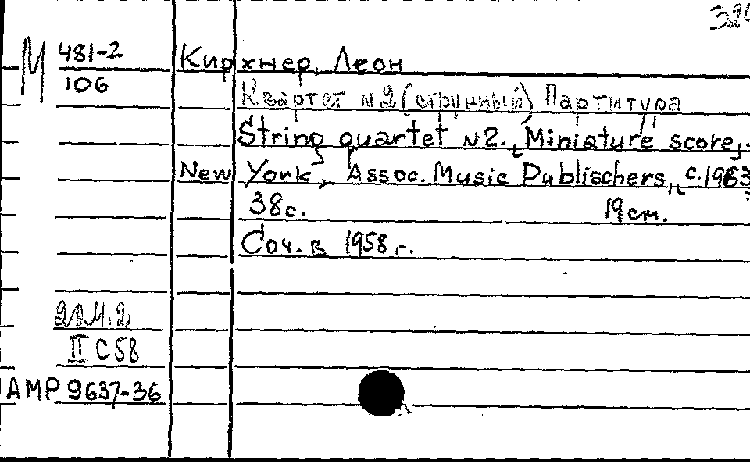 М 481-2
Кирхнер, Леон
106
Квартет №2 (струнный) Партитура
String quartet №2. Miniature score,
New York, Assoc. Music Publischers, c.1963
38с. 19см.
Соч. в 1958г.
II С 58
AMP 9637-36